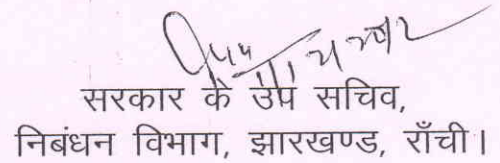 सरकार के उप सचिव,
निबंधन विभाग, झारखण्ड, राँची।